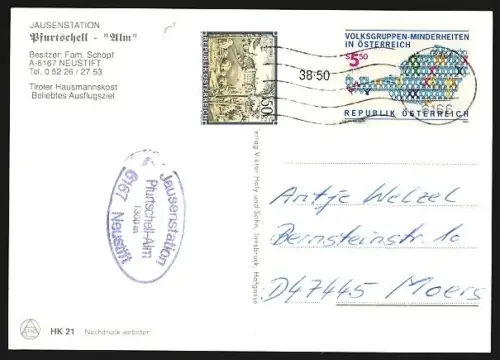 JAUSENSTATION
Pfurtschell - "Alm"
Besitzer: Fam. Schöpf
A-6167 NEUSTIFT
Tel. 0 52 26 / 27 53
Tiroler Hausmannskost
Beliebtes Ausflugsziel
50
38·50
VOLKSGRUPPEN-MINDERHEITEN
IN ÖSTERREICH
S 5.50
6166
REPUBLIK ÖSTERREICH
Jausenstation
Pfurtschell-Alm
1300 m
6167 Neustift
Verlag Viktor Holy und Sohn, Innsbruck, Hofgasse
Antje Welzel
Bernsteinstr. 1a
D47445 Moers
HK 21 Nachdruck verboten